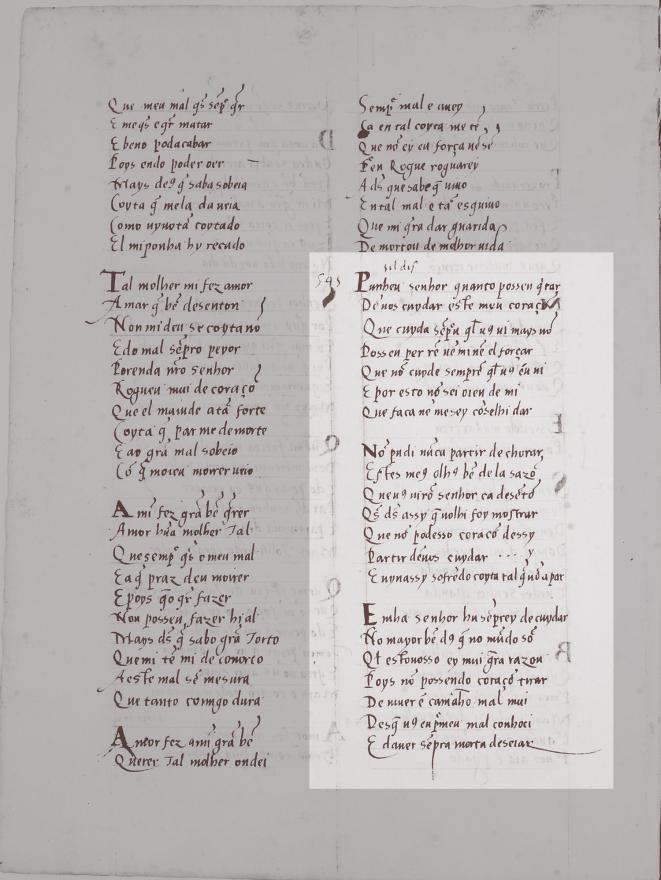 Que meu mal q̄s sēp̄ q̄r
E meq̄s eq̄r matar
E beno podacabar
Poys endo poder oer
Mays de9 q̄ saba sobeia
Coyta q̄ mela da ueia
Como uyuota coytado
El miponha hy recado
Tal molher mi fez amor
Amar q̄ bē desenton
Non mi deu se coyta nō
Edo mal sēpro peyor
Porenda nr̄o senhor
Rogueu mui de coraçō
Que el maiude atā forte
Coyta q̄ par me de morte
E ao grā mal sobeio
Cō q̄ moieu morrer ueio
A mi fez grā bē q̄rer
Amor hūa molher Tal
Que semp̄ q̄s o meu mal
E a q̄ praz deu morrer
E poys q̄o q̄r fazer
Non posseu fazer hi al
Mays d̄s q̄ sabo grā Torto
Que mi tē mi de conorto
A este mal sē mesura
Que tanto comigo dura
Amor fez ami grā bē
Querer Tal molher ondei
Semp̄ mal e auey
Ca en tal coyta me tē
Que nō ey eu força nē sē
Pen Rogue roguarey
A d̄s que sabe q̄ uiuo
En tal mal e tā esquiuo
Que mi q̄ra dar guarida
De mortou de melhor uida
545
Punheu senhor quanto posseu q̄tar
Deuos cuydar este meu coraçō
Que cuyda sēp̄u q̄l u9 ui mays nō
Posseu per rē nē mi nē el forçar
Que nō cuyde sempre q̄l u9 eu ui
E por esto nō sei oieu de mi
Que faca nē me sey cōselhi dar
Nō pudi nūca partir de chorar
Estes me9 olh9 bē de la sazō
Que u9 uirō senhor ca desētō
Q̄s d̄s assy q̄ uolhi foy mostrar
Que nō podesso coraçō dessy
Partir deuos cuydar
E uyuassy sofrēdo coyta tal q̄ nō a par
E mha senhor hu sēprey de cuydar
No mayor bē d9 q̄ no mūdo sō
Q̄l est o uosso ey mui grā razon
Poys nō possendo coraçō tirar
De uiuer ē camāho mal uiui
Desq̄ u9 eu p̄ meu mal conhoci
E dauer sēpra morta deseiar